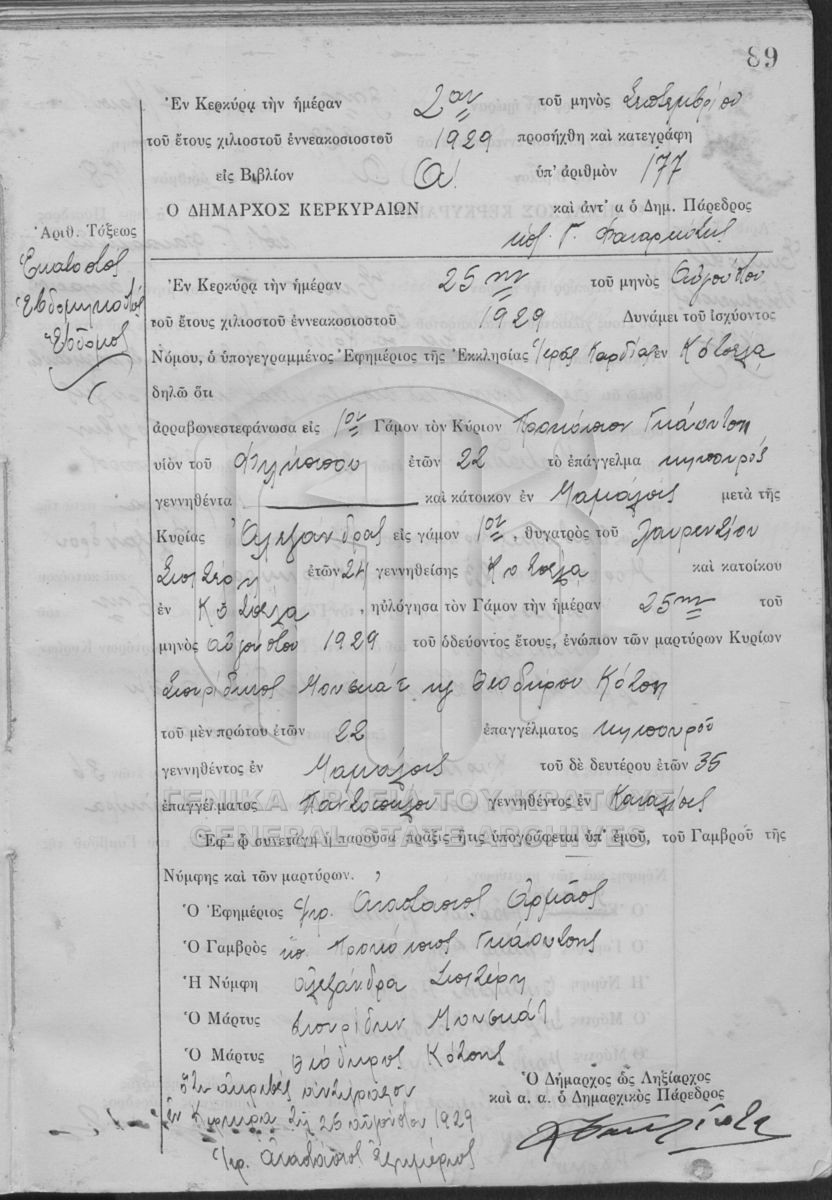 89
Ἐν Κερκύρᾳ τὴν ἡμέραν 2αν τοῦ μηνὸς Σεπτεμβρίου
τοῦ ἔτους χιλιοστοῦ ἐννεακοσιοστοῦ 1929 προσήχθη καὶ κατεγράφη
εἰς Βιβλίον Α! ὑπ' ἀριθμὸν 177
Ο ΔΗΜΑΡΧΟΣ ΚΕΡΚΥΡΑΙΩΝ καὶ ἀντ' α ὁ Δημ. Πάρεδρος
Γ.
Ἀριθ. Τάξεως
Ἑκατοστὸς
Ἑβδομηκοστὸς
Ἕβδομος
Ἐν Κερκύρᾳ τὴν ἡμέραν 25ην τοῦ μηνὸς Αὐγούστου
τοῦ ἔτους χιλιοστοῦ ἐννεακοσιοστοῦ 1929 Δυνάμει τοῦ ἰσχύοντος
Νόμου, ὁ ὑπογεγραμμένος Ἐφημέριος τῆς Ἐκκλησίας Ἱερᾶς Καρδίας ἐν Κότσελα
δηλῶ ὅτι
ἀρραβωνεστεφάνωσα εἰς 1ον Γάμον τὸν Κύριον Προκόπιον Γκάουτση
υἱὸν τοῦ Φιλίππου ἐτῶν 22 τὸ ἐπάγγελμα κηπουρός
γεννηθέντα καὶ κάτοικον ἐν Μαμάλοις μετὰ τῆς
Κυρίας Ἀλεξάνδρας εἰς γάμον 1ον, θυγατρὸς τοῦ Λαυρεντίου
Σιστέρη ἐτῶν 24 γεννηθείσης Κότσελα καὶ κατοίκου
ἐν Κότσελα, ηὐλόγησα τὸν Γάμον τὴν ἡμέραν 25ην τοῦ
μηνὸς Αὐγούστου 1929 τοῦ ὁδεύοντος ἔτους, ἐνώπιον τῶν μαρτύρων Κυρίων
Σπυρίδωνος Μουσκάτ κ Θεοδώρου Κότση
τοῦ μὲν πρώτου ἐτῶν 22 ἐπαγγέλματος κηπουροῦ
γεννηθέντος ἐν Μαμάλοις τοῦ δὲ δευτέρου ἐτῶν 35
ἐπαγγέλματος Παντοπώλου γεννηθέντος ἐν
ΓΕΝΙΚΑ ΑΡΧΕΙΑ ΤΟΥ ΚΡΑΤΟΥΣ
GENERAL STATE ARCHIVES
Ἐφ' ᾧ συνετάγη ἡ παροῦσα πρᾶξις ἥτις ὑπογράφεται ὑπ' ἐμοῦ, τοῦ Γαμβροῦ τῆς
Νύμφης καὶ τῶν μαρτύρων.
Ὁ Ἐφημέριος Ἱερ. Αναστάσιος Αρμάος
Ὁ Γαμβρὸς Προκόπιος Γκάουτσης
Ἡ Νύμφη Αλεξάνδρα Σιστέρη
Ὁ Μάρτυς Σπυρίδων Μουσκάτ
Ὁ Μάρτυς Θεόδωρος Κότσης
Ὅτι ἀκριβὲς ἀντίγραφον
Ἐν Κερκύρᾳ τῇ 26 αὐγούστου 1929
Ἱερ. Ἀναστάσιος Ἐφημέριος
Ὁ Δήμαρχος ὡς Ληξίαρχος
καὶ α. α. ὁ Δημαρχικὸς Πάρεδρος